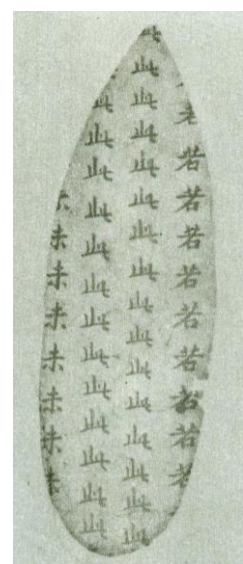 若若若若若若若若若若
此此此此此此此此此此此此此此此此
此此此此此此此此此此此此此
未未未未未未未